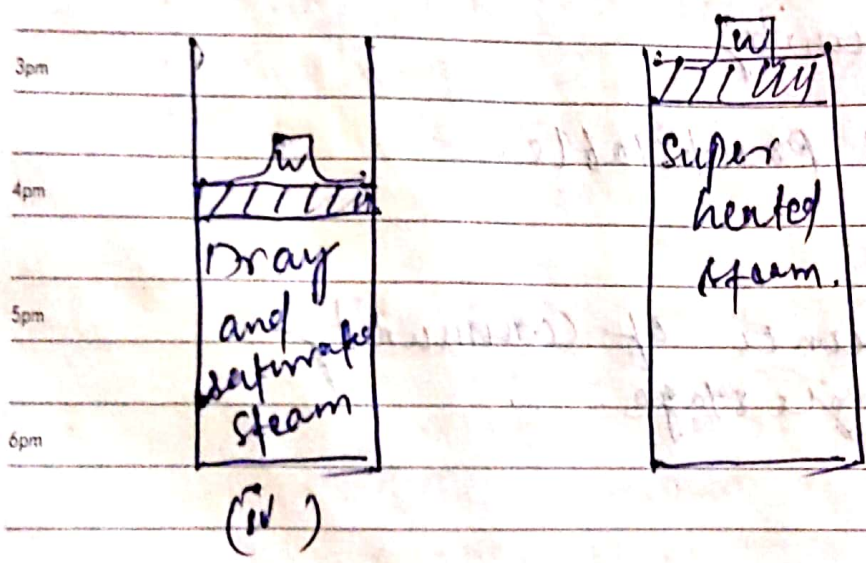 3pm
4pm
5pm
6pm
W
Dray
and
saturated
steam
(iv)
W
Super
heated
steam.